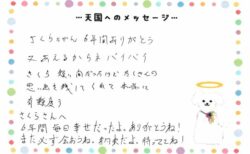 …天国へのメッセージ…
さくらちゃん 6年間ありがとう
又あえるからネ バイバイ
さくら 短い間だったけど たくさんの
思い出を残してくれて 本当に
有難度う
さくらさんへ
6年間毎日幸せだったよ。ありがとうね!
また必ず会おうね。約束だよ。待っててね!